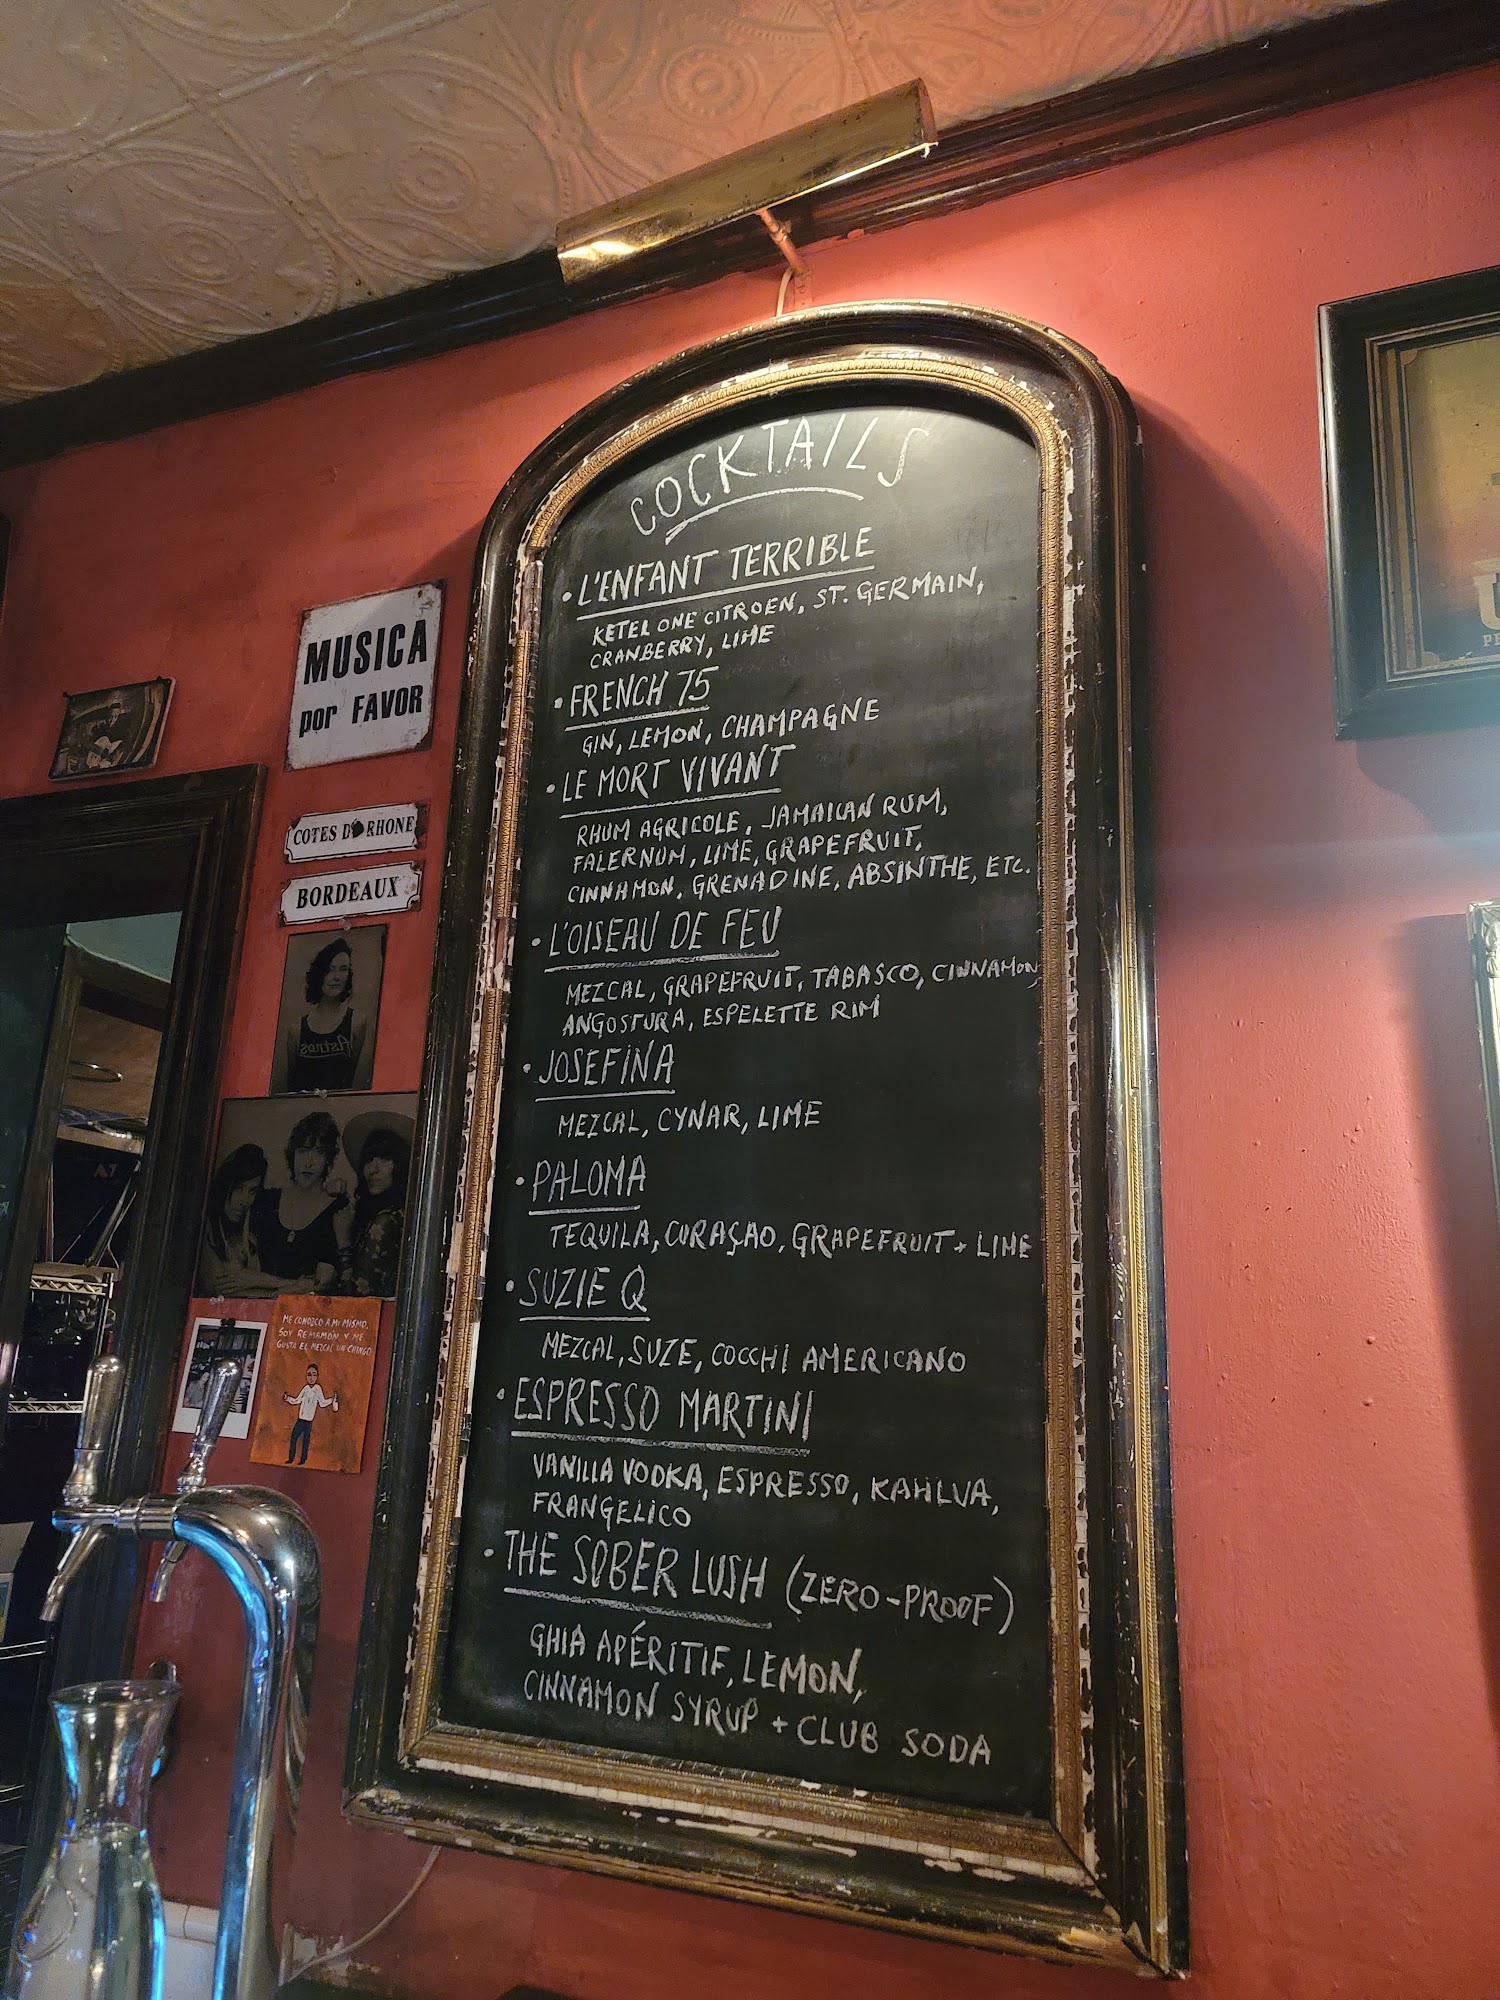 COCKTAILS
• L'ENFANT TERRIBLE
KETEL ONE CITROEN, ST. GERMAIN,
CRANBERRY, LIME
• FRENCH 75
GIN, LEMON, CHAMPAGNE
• LE MORT VIVANT
RHUM AGRICOLE, JAMAICAN RUM,
FALERNUM, LIME, GRAPEFRUIT,
CINNAMON, GRENADINE, ABSINTHE, ETC.
• L'OISEAU DE FEU
MEZCAL, GRAPEFRUIT, TABASCO, CINNAMON,
ANGOSTURA, ESPELETTE RIM
• JOSEFINA
MEZCAL, CYNAR, LIME
• PALOMA
TEQUILA, CURAÇAO, GRAPEFRUIT + LIME
• SUZIE Q
MEZCAL, SUZE, COCCHI AMERICANO
• ESPRESSO MARTINI
VANILLA VODKA, ESPRESSO, KAHLUA,
FRANGELICO
• THE SOBER LUSH (ZERO-PROOF)
GHIA APÉRITIF, LEMON,
CINNAMON SYRUP + CLUB SODA
MUSICA
por FAVOR
COTES DU RHONE
BORDEAUX
Astros
ME CONOZCO A MI MISMO,
SOY REMAMÓN Y ME
GUSTA EL MEZCAL UN CHINGO